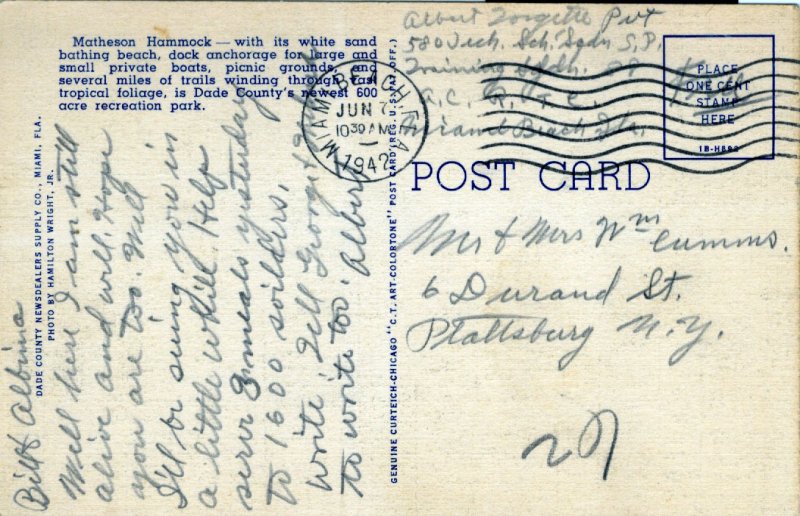 Matheson Hammock — with its white sand
bathing beach, dock anchorage for large and
small private boats, picnic grounds, and
several miles of trails winding through vast
tropical foliage, is Dade County's newest 600
acre recreation park.
DADE COUNTY NEWSDEALERS SUPPLY CO., MIAMI, FLA.
PHOTO BY HAMILTON WRIGHT, JR.
Bill & Albina
Well here I am still
alive and well. Hope
you are too. Well
I'll be seing you in
a little while. Help
serve 3 meals yesturday
to 1600 soilders,
write. Tell Georgie
to write too. Albert
GENUINE CURTEICH-CHICAGO "C.T. ART-COLORTONE" POST CARD (REG. U.S. PAT. OFF.)
Albert Forgette Pvt
580 Tech. Sch. Sqdn S.P.
Training
A.C. R. T. C.
Miami Beach Fla.
MIAMI BEACH FLA
JUN 7
10 30 AM
1942
PLACE
ONE CENT
STAMP
HERE
1B-H892
POST CARD
Mr & Mrs Wm Cumms.
6 Durand St.
Plattsburg N.Y.